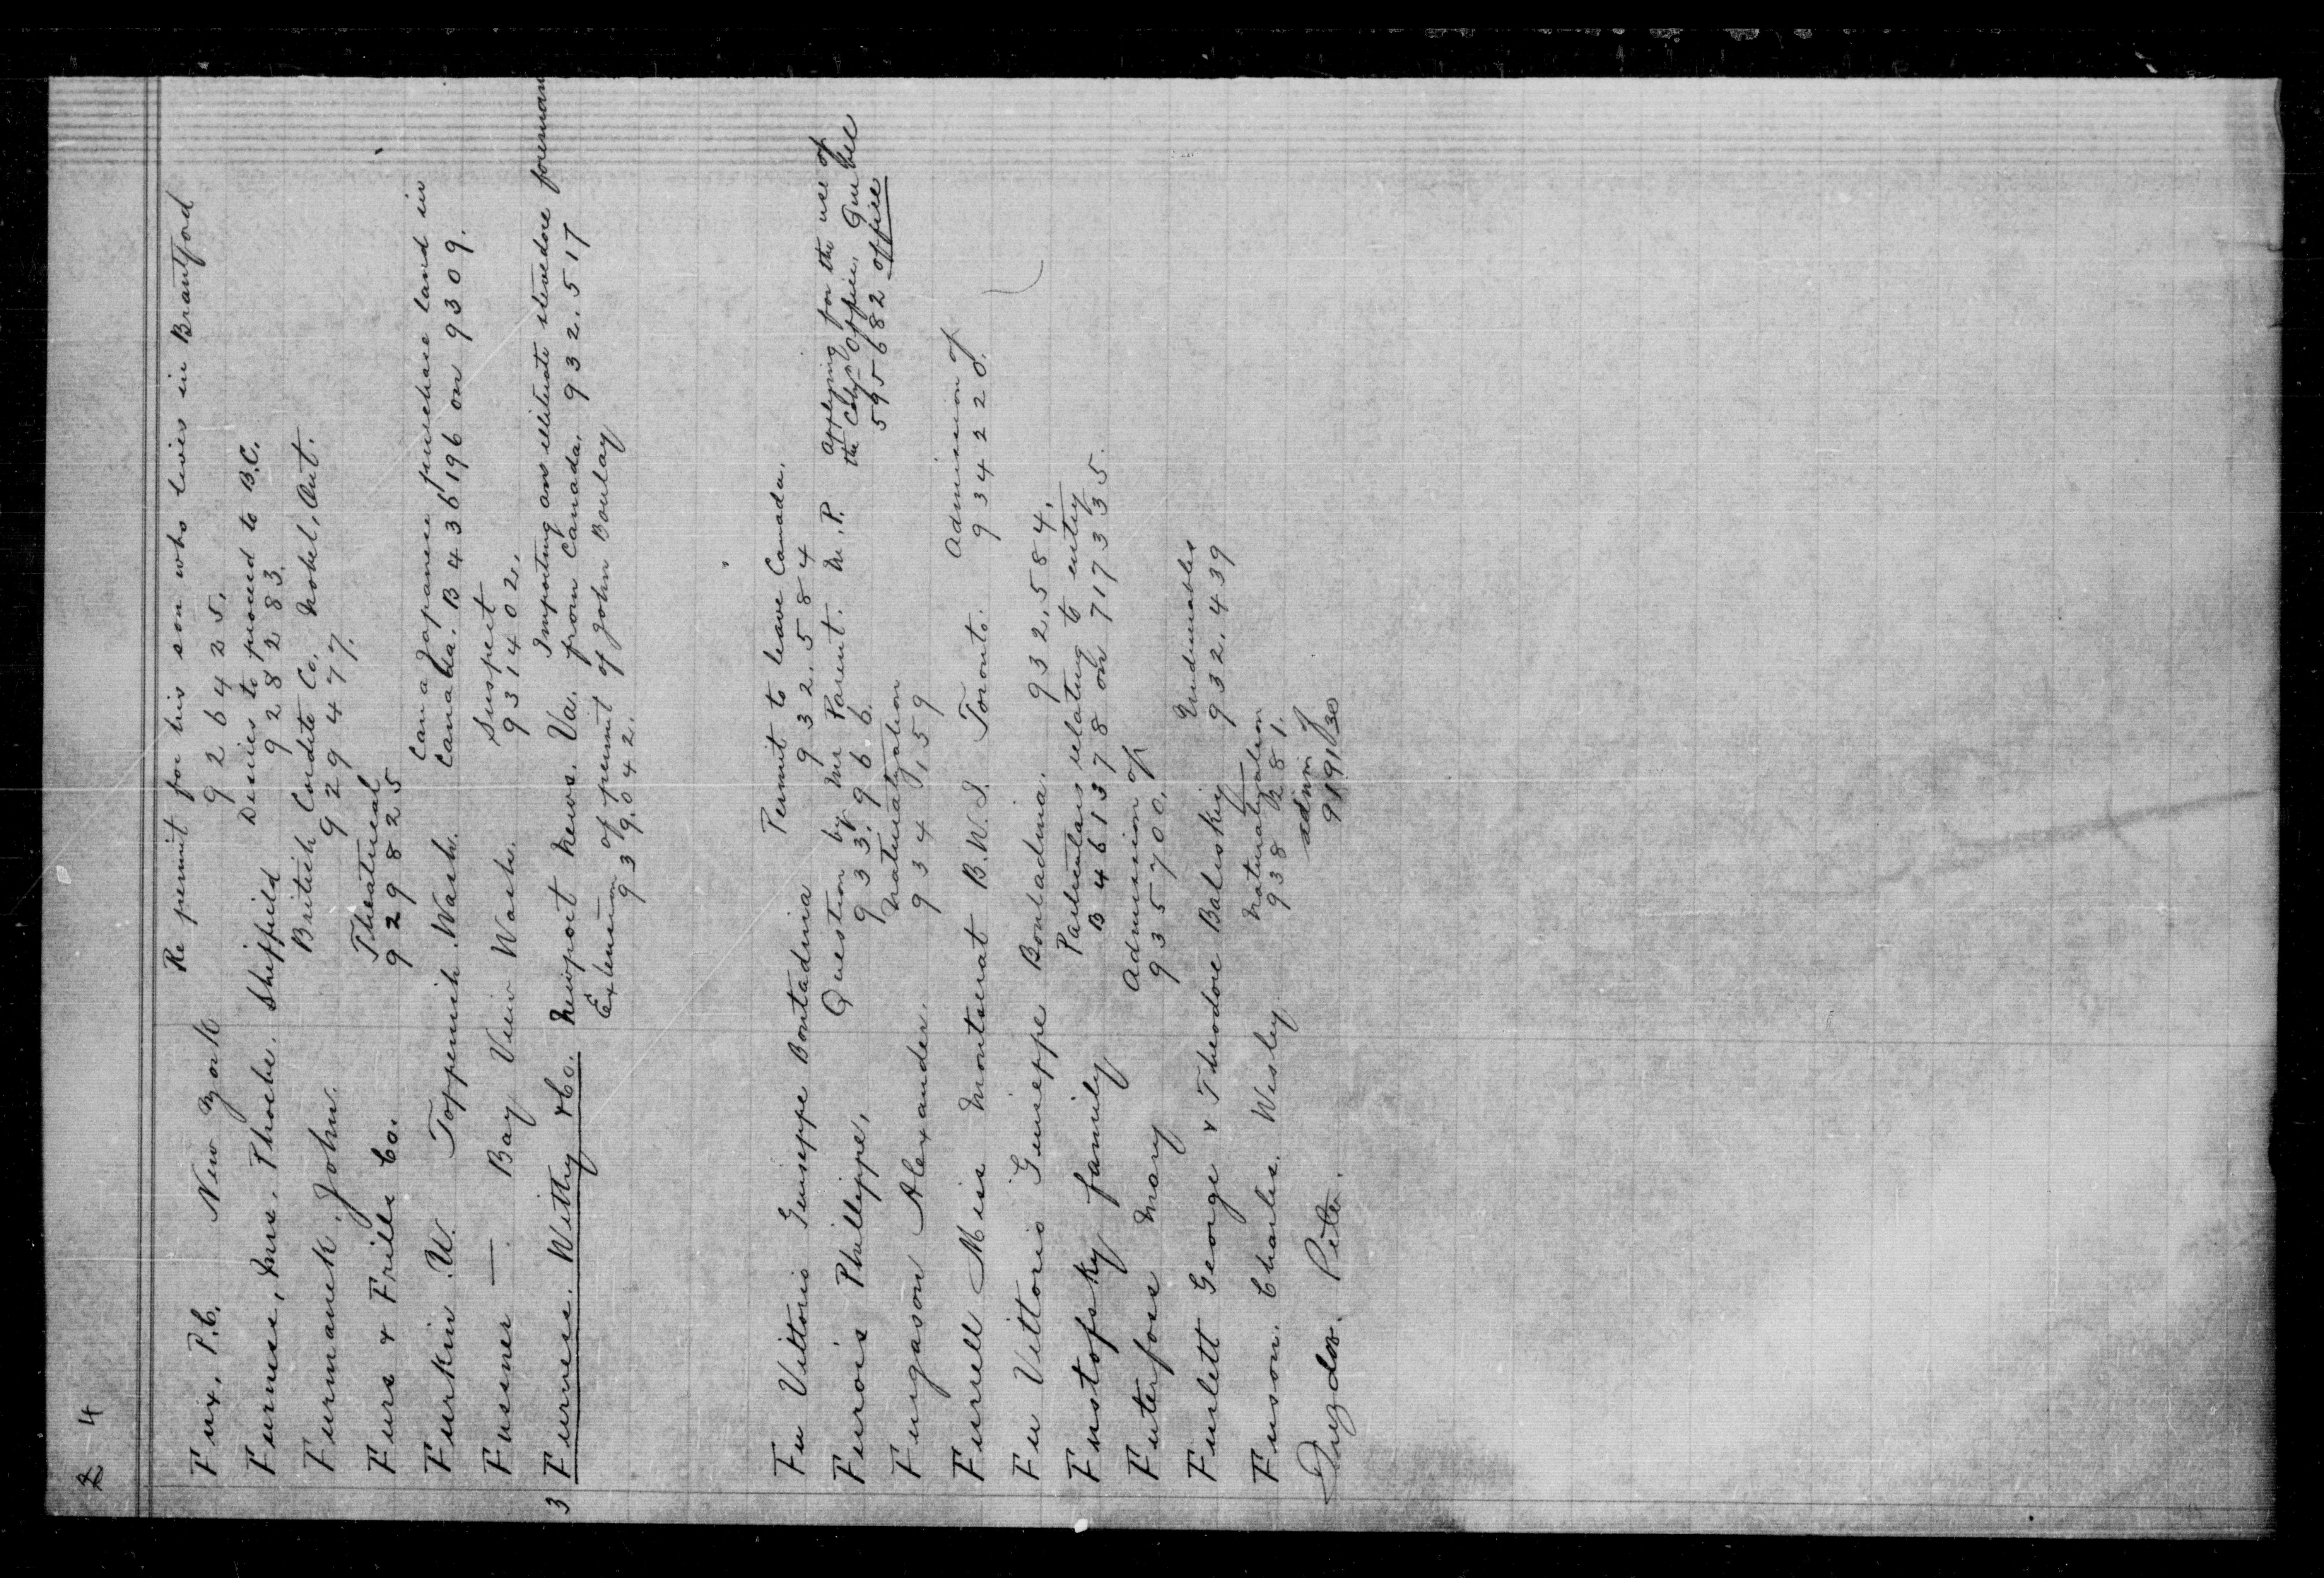 2 4
Fux. P.C. New York Re permit for his son who lives in Brantford
926425.
Furniss, Mrs. Phoebe. Sheffield Desires to proceed to B.C.
928283.
Furmanek. John. British Cordite Co. Nobel, Ont.
929477.
Furs & Frills Co. Theatrical
929825
Furkin W. Toppenish. Wash. Can a Japanese purchase land in
Canada. B 436196 on 9309.
Fussner — Bay View Wash. Suspect
931402.
3 Furness. Withy & Co. Newport News. Va. Importing an illiterate stevedore foreman
from Canada. 932.517
Extension of permit of John Boulay
939.042.
Fu Vittorio Guiseppe Bontadina Permit to leave Canada.
932.584
Furois Phillippe, Question by Mr Parent. M.P. Applying for the use of
the Col. Office, Quebec
933.966. 595682 office
Fugason Alexander. Naturalization
934,159
Furrell Miss Montserat B.W.I. Toronto. Admission of
934220.
Fu Vittorio Guiseppe Bontadina. 932.584.
Fustofsky family Particulars relating to entry
B 461378 on 717335.
Futerfose Mary Admission of
935700.
Furlett George & Theodore Baluskiy Undesirables
932.439
Fuson. Charles. Wesley Naturalization
938281.
Fuzdor. Peter. admn of
919130